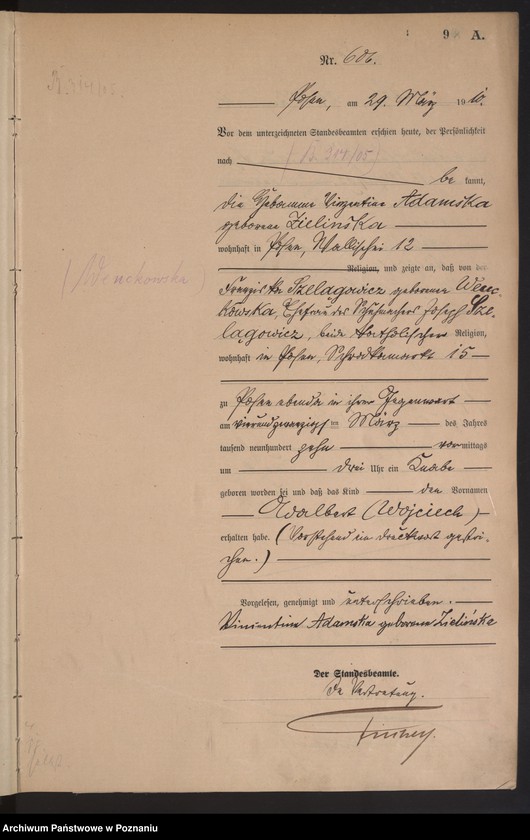 9 A.
Nr. 606.
Posen, am 29. März 1910.
Vor dem unterzeichneten Standesbeamten erschien heute, der Persönlichkeit
nach be kannt,
die Hebamme Vinzentine Adamska
geborene Zielinska
wohnhaft in Posen, Wallischei 12
Religion, und zeigte an, daß von der
Franziska Szelagowicz geborene Wenc-
kowska, Ehefrau des Schuhmachers Joseph Sze-
lagowicz, beide katholischer Religion,
wohnhaft in Posen, Schrodkamarkt 15
zu Posen ebenda in ihrer Gegenwart
am vierundzwanzigsten März des Jahres
tausend neunhundert zehn vormittags
um drei Uhr ein Knabe
geboren worden sei und daß das Kind den Vornamen
Adalbert (Wojciech)
erhalten habe. (Vorstehend ein Druckwort gestri-
chen.)
Vorgelesen, genehmigt und unterschrieben.
Vinzentine Adamska geborene Zielińska
Der Standesbeamte.
In Vertretung.
(Wenckowska)
Archiwum Państwowe w Poznaniu